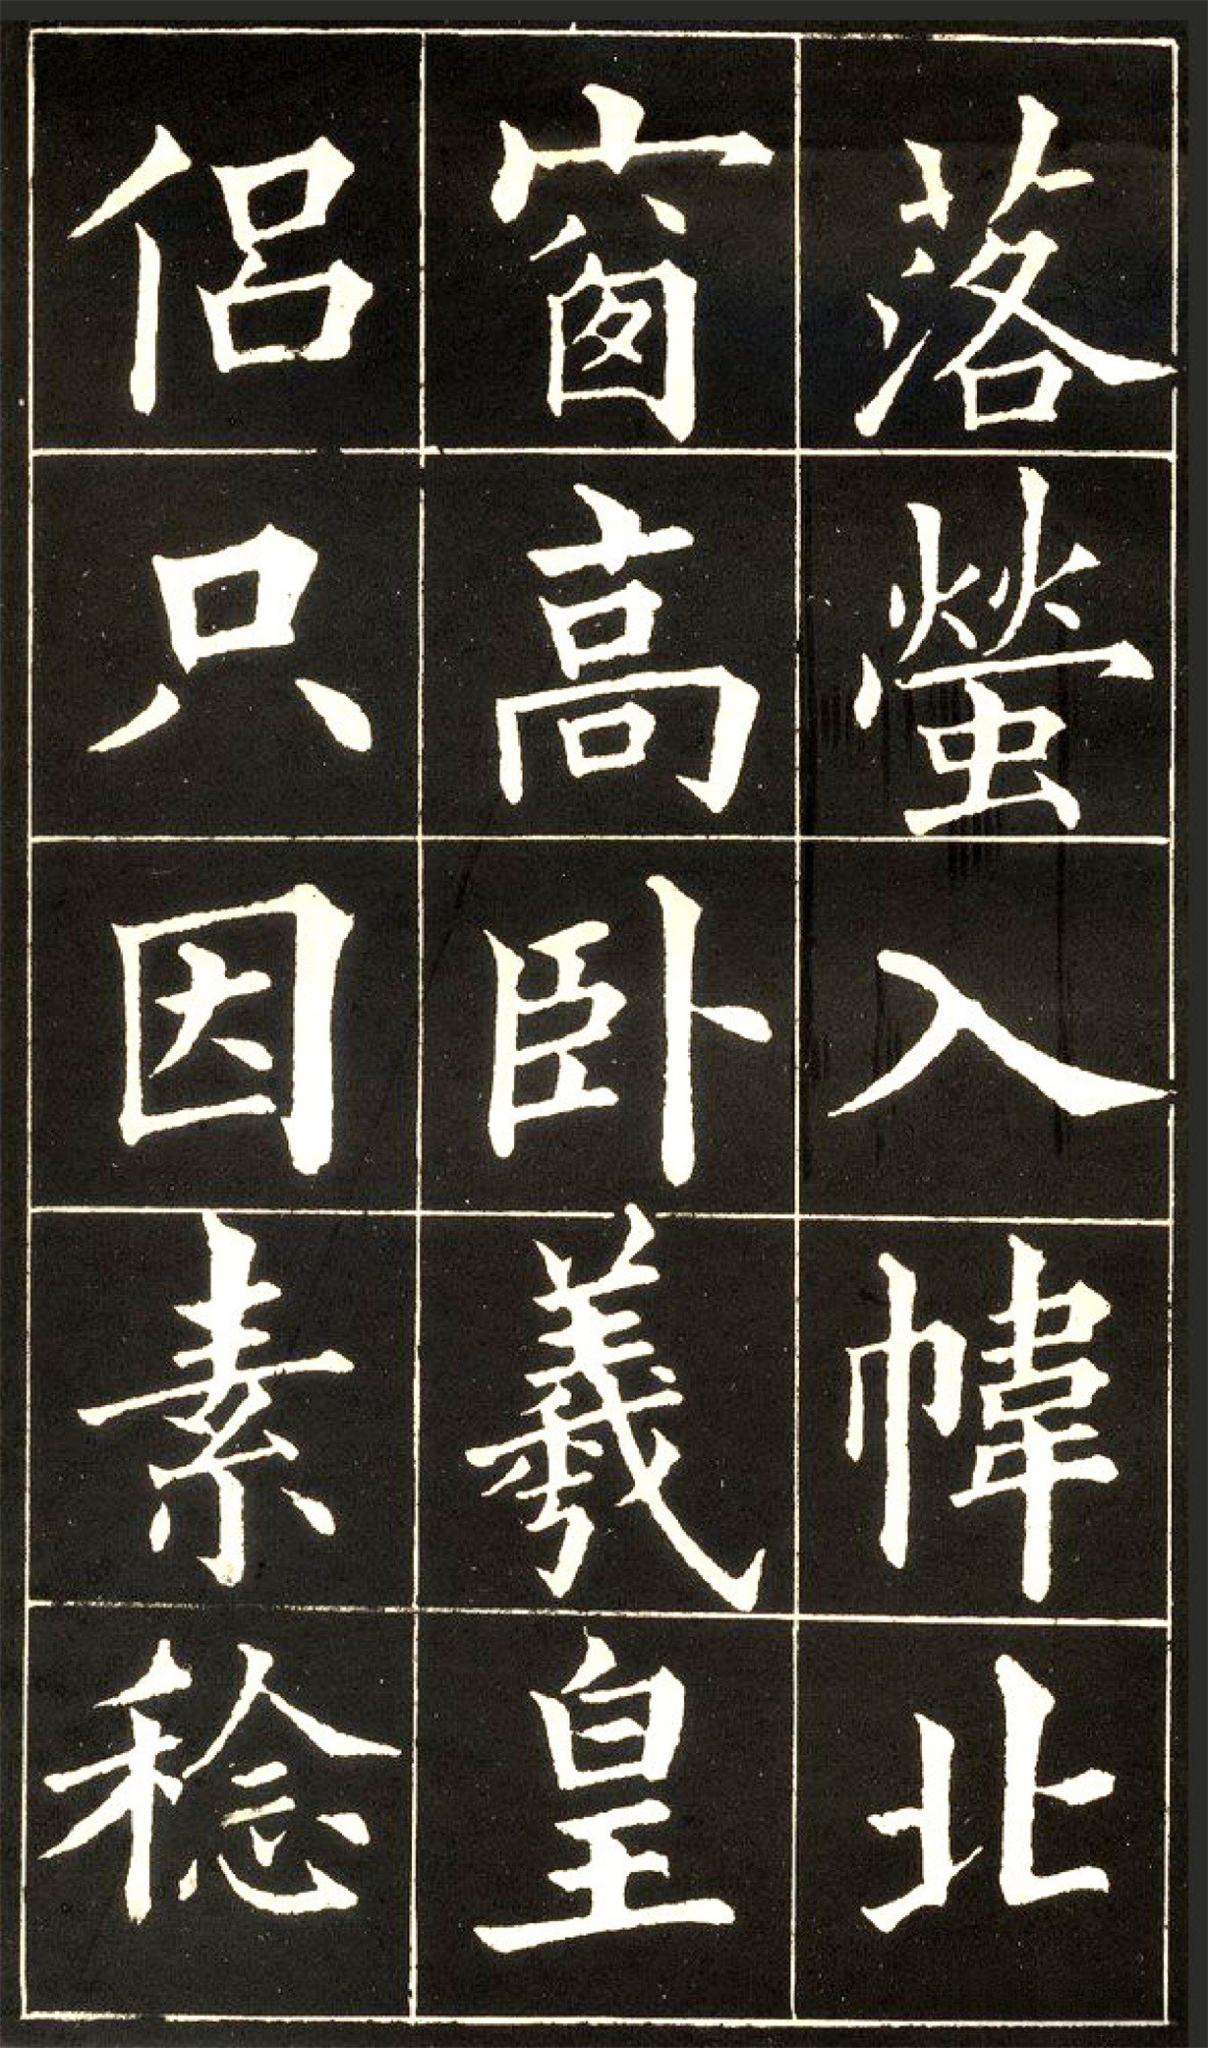 落螢入幃北
窗高卧羲皇
侣只因素稔